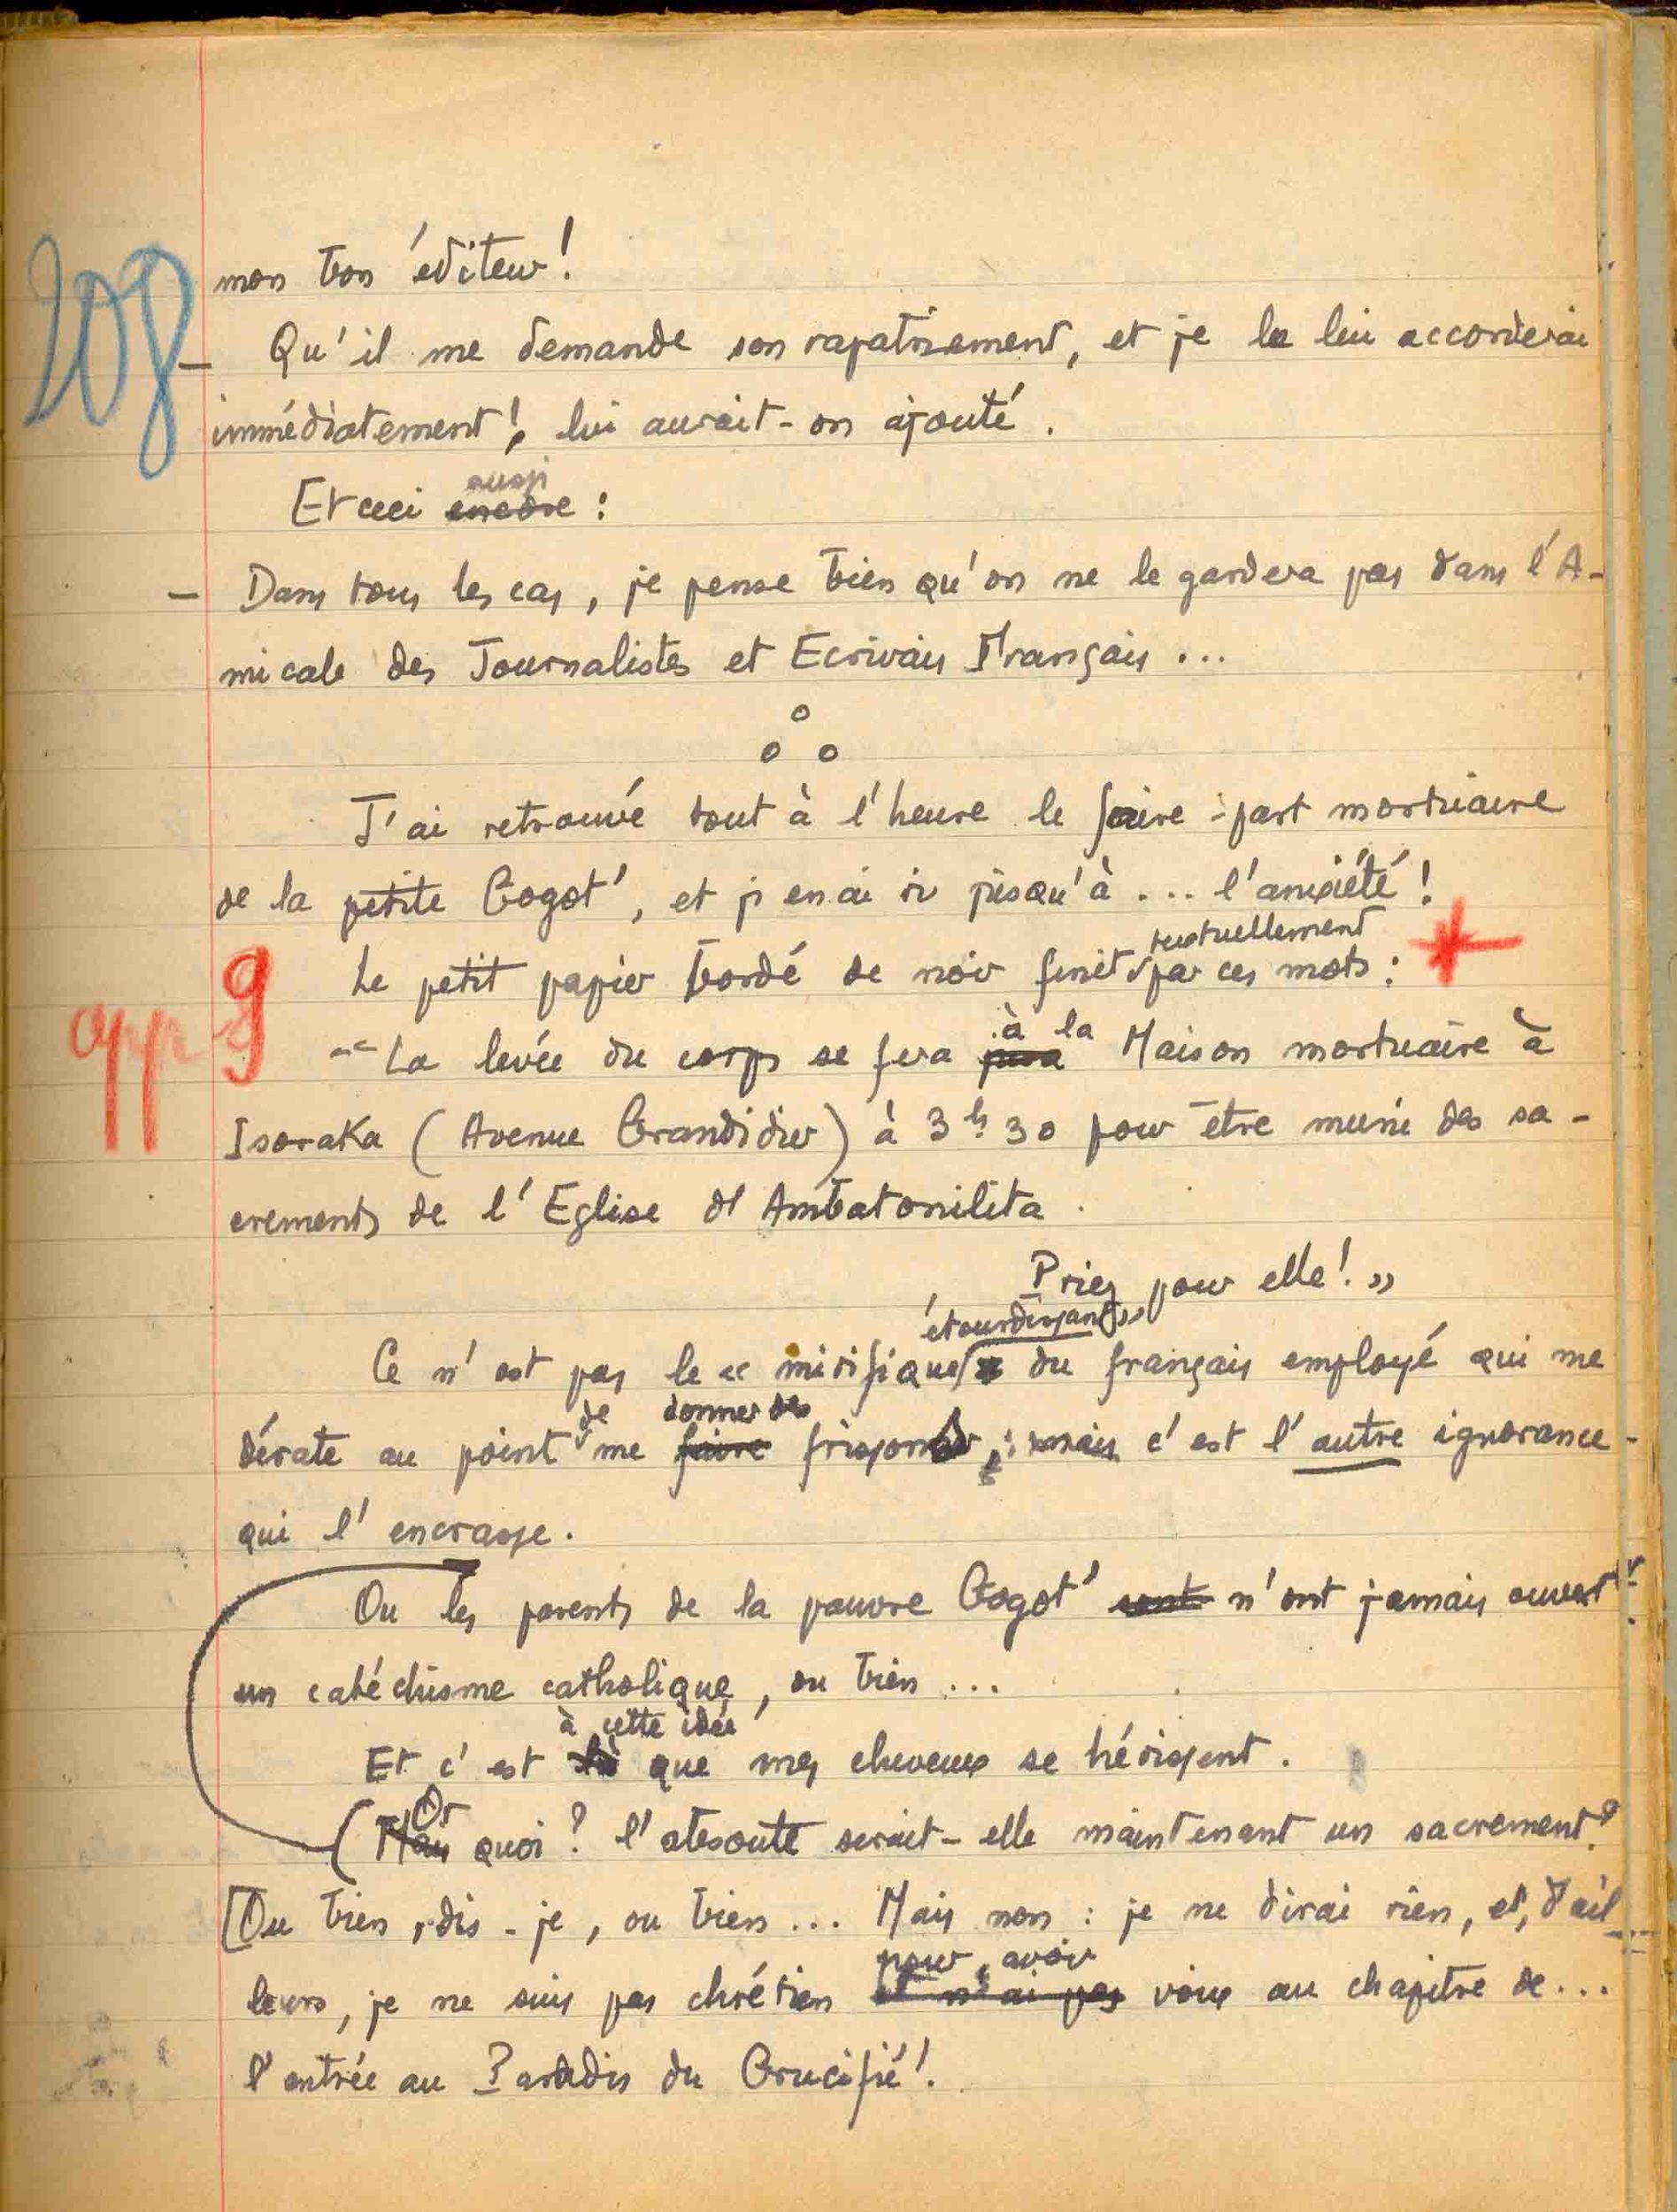 208
mon bon éditeur !
– Qu'il me demande son rapatriement, et je le lui accorderai
immédiatement !, lui aurait-on ajouté.
aussi
Et ceci encore :
– Dans tous les cas, je pense bien qu'on ne le gardera pas dans l'A-
micale des Journalistes et Ecrivais Français ...
J'ai retrouvé tout à l'heure le faire-part mortuaire
de la petite Gogot', et j'en ai ri jusqu'à ... l'anxiété !
textuellement
Le petit papier bordé de noir finit par ces mots : +
app g
à la
« La levée du corps se fera Maison mortuaire à
Isoraka (Avenue Grandidier) à 3h 30 pour être muni des sa-
crements de l'Eglise d'Ambatonilita.
Priez pour elle ! »
étourdissant »
Ce n'est pas le « mirifique du français employé qui me
de donner des
dérate au point me faire frissons ; mais c'est l'autre ignorance
qui l'encrasse.
Ou les parents de la pauvre Gogot' sont n'ont jamais ouvert
un catéchisme catholique, ou bien ...
à cette idée
Et c'est là que mes cheveux se hérissent.
Or
(Mais quoi ? l'absoute serait-elle maintenant un sacrement ?
[Ou bien, dis-je, ou bien ... Mais non : je ne dirai rien, et, d'ail-
pour avoir
leurs, je ne suis pas chrétien et n'ai pas voix au chapitre de ...
l'entrée au Paradis du Crucifié !